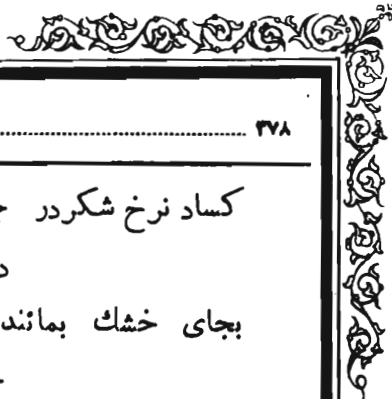 ۳۷۸
کساد نرخ شکردر
بجای خشك بمانند